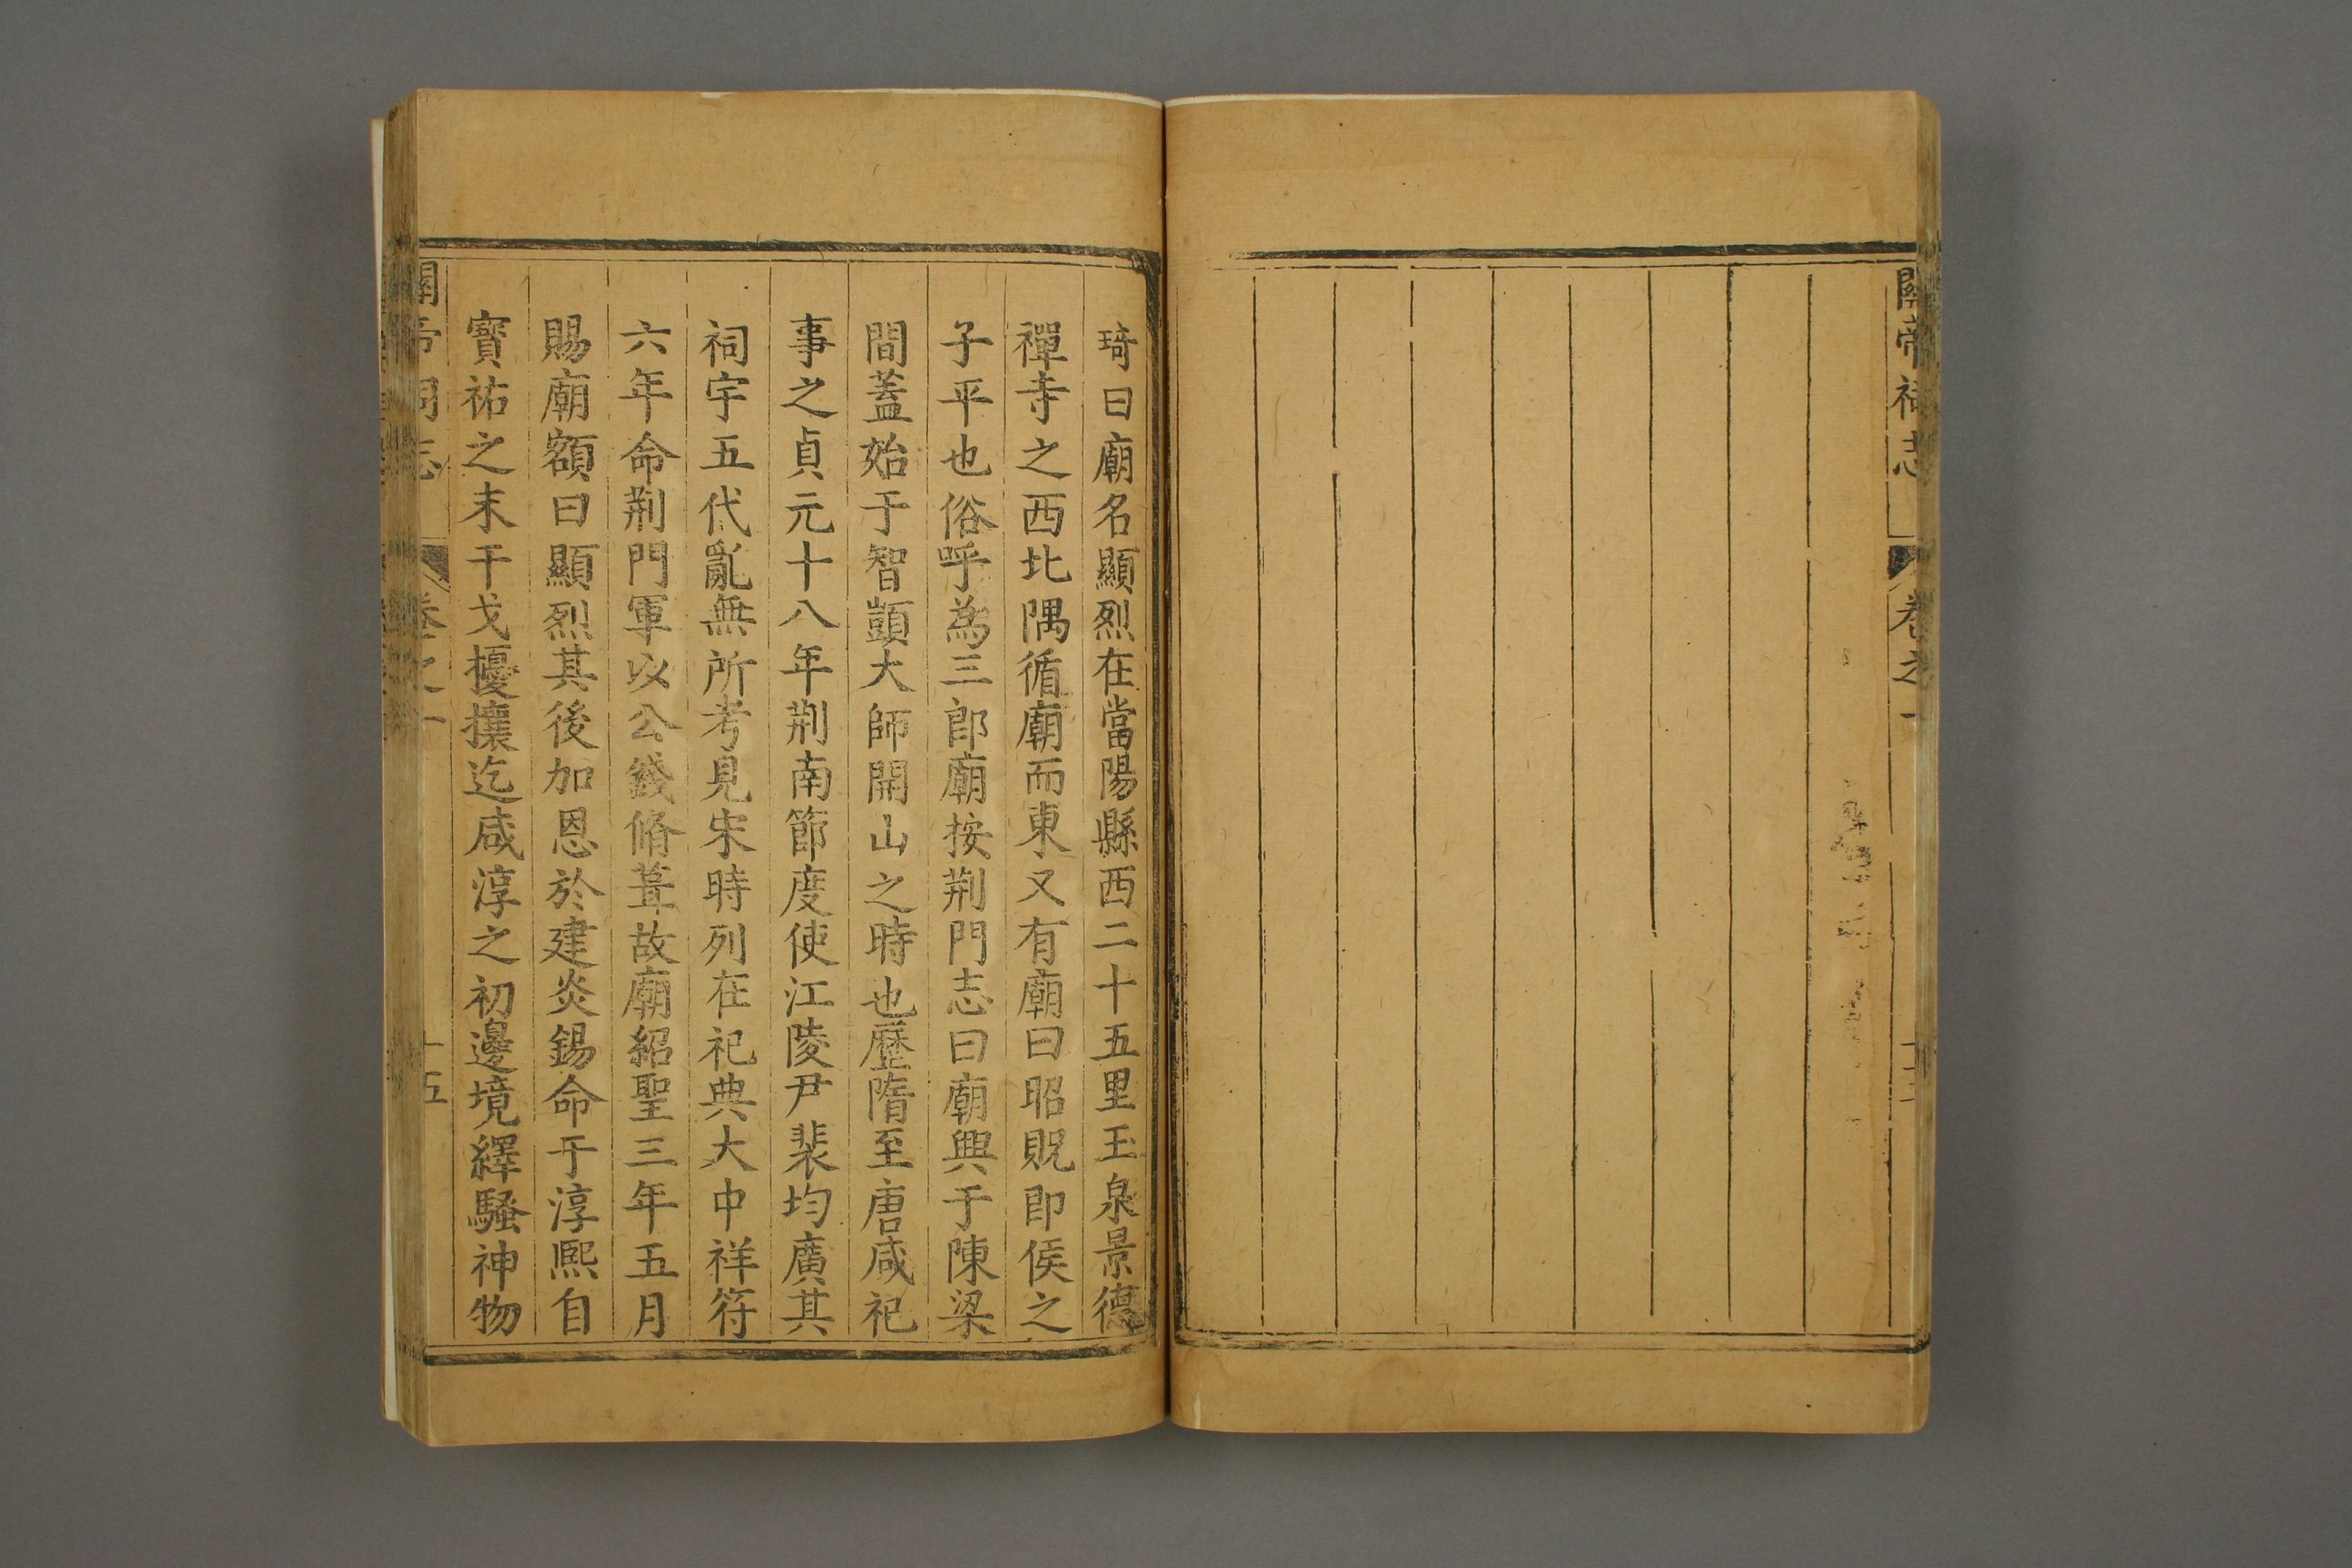 關帝祠志
卷之一
琦曰廟名顯烈在當陽縣西二十五里玉泉景德
禪寺之西北隅循廟而東又有廟曰昭貺即侯之
子平也俗呼為三郎廟按荆門志曰廟興于陳梁
間蓋始于智顗大師開山之時也歷隋至唐咸祀
事之貞元十八年荆南節度使江陵尹裴均廣其
祠宇五代亂無所考見宋時列在祀典大中祥符
六年命荆門軍以公錢脩葺故廟紹聖三年五月
賜廟額曰顯烈其後加恩於建炎錫命于淳熙自
寳祐之末干戈擾攘迄咸淳之初邊境繹騷神物
關帝祠志
卷之一
十五